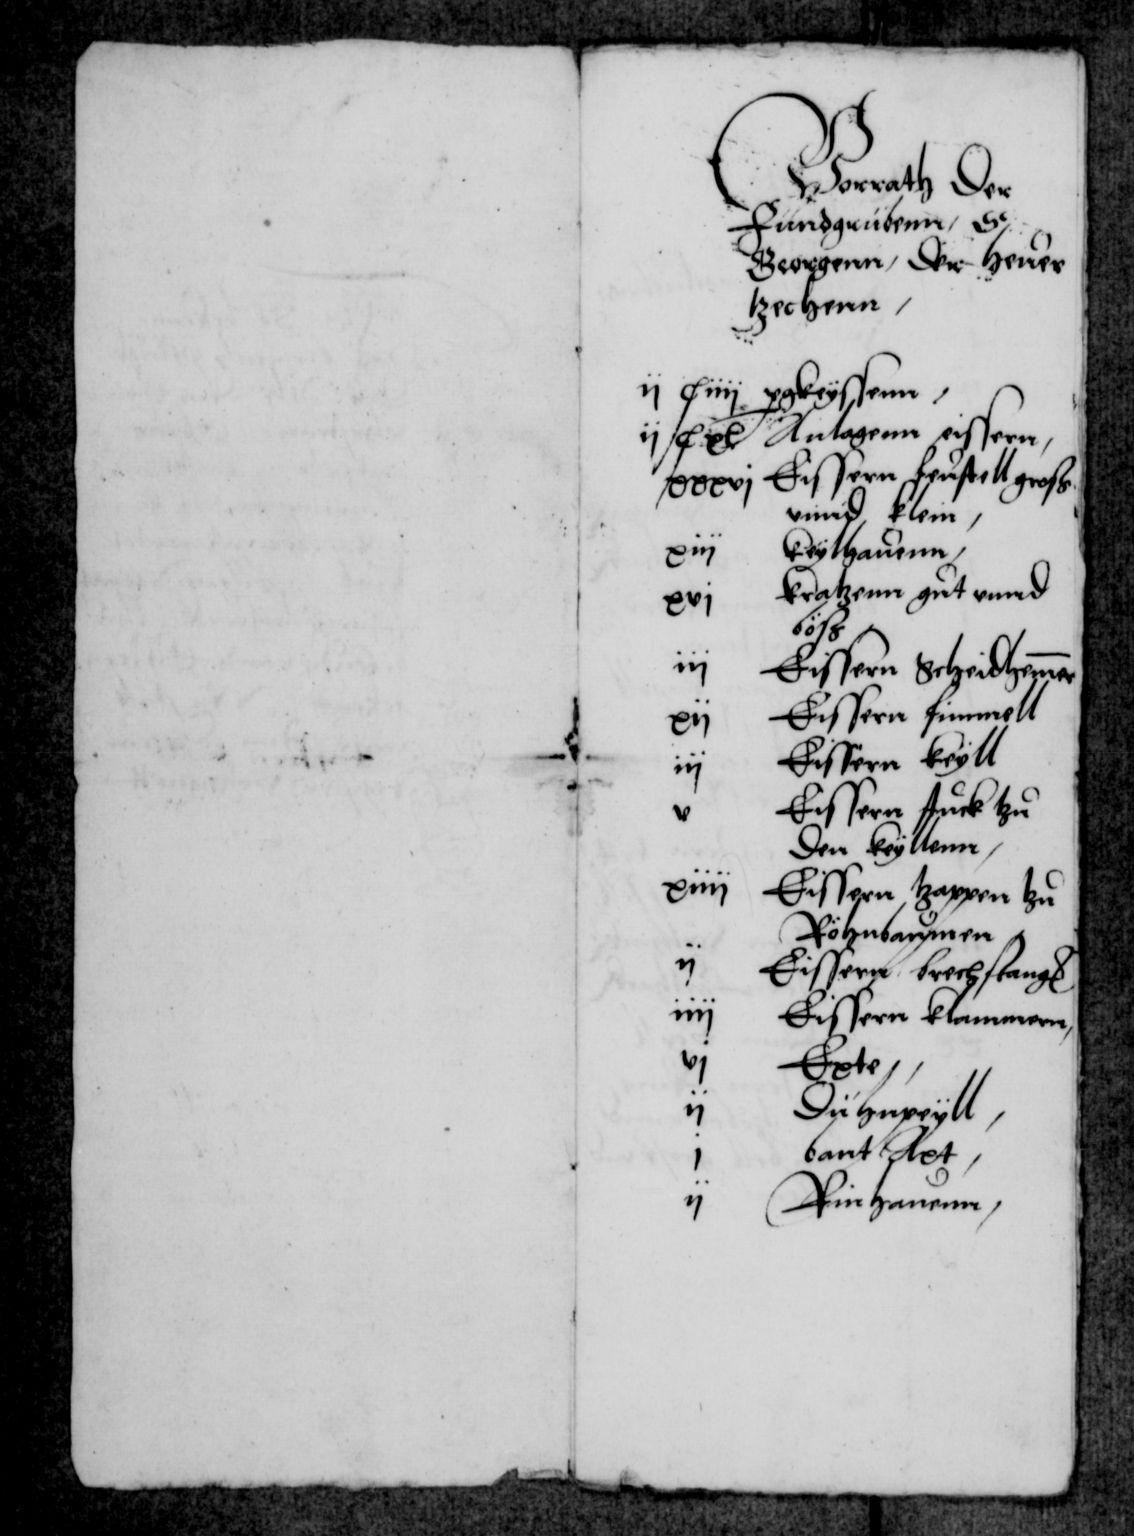 Vorrath der
Fundgrubenn, S.
Georgenn, der heuer
tzechenn,
ii ciiii pgkeyssenn,
ii cxl Anlagenn eissern,
xxxvi Eissern feustell gross
vnnd klein,
xiii keylhauenn,
xvi kratzenn gut vnnd
böss
iii Eissern Scheidhem̅er
xii Eissern fimmell
iii Eissern keyll
v Eissern stuck tzu
den keyllenn,
xiiii Eissern tzappen tzu
Röhnbaumen
ii Eissern brechstang
iiii Eissern klammern,
vi Exte,
ii Dühnpeyll,
i bant Axt,
ii Rinhauenn,